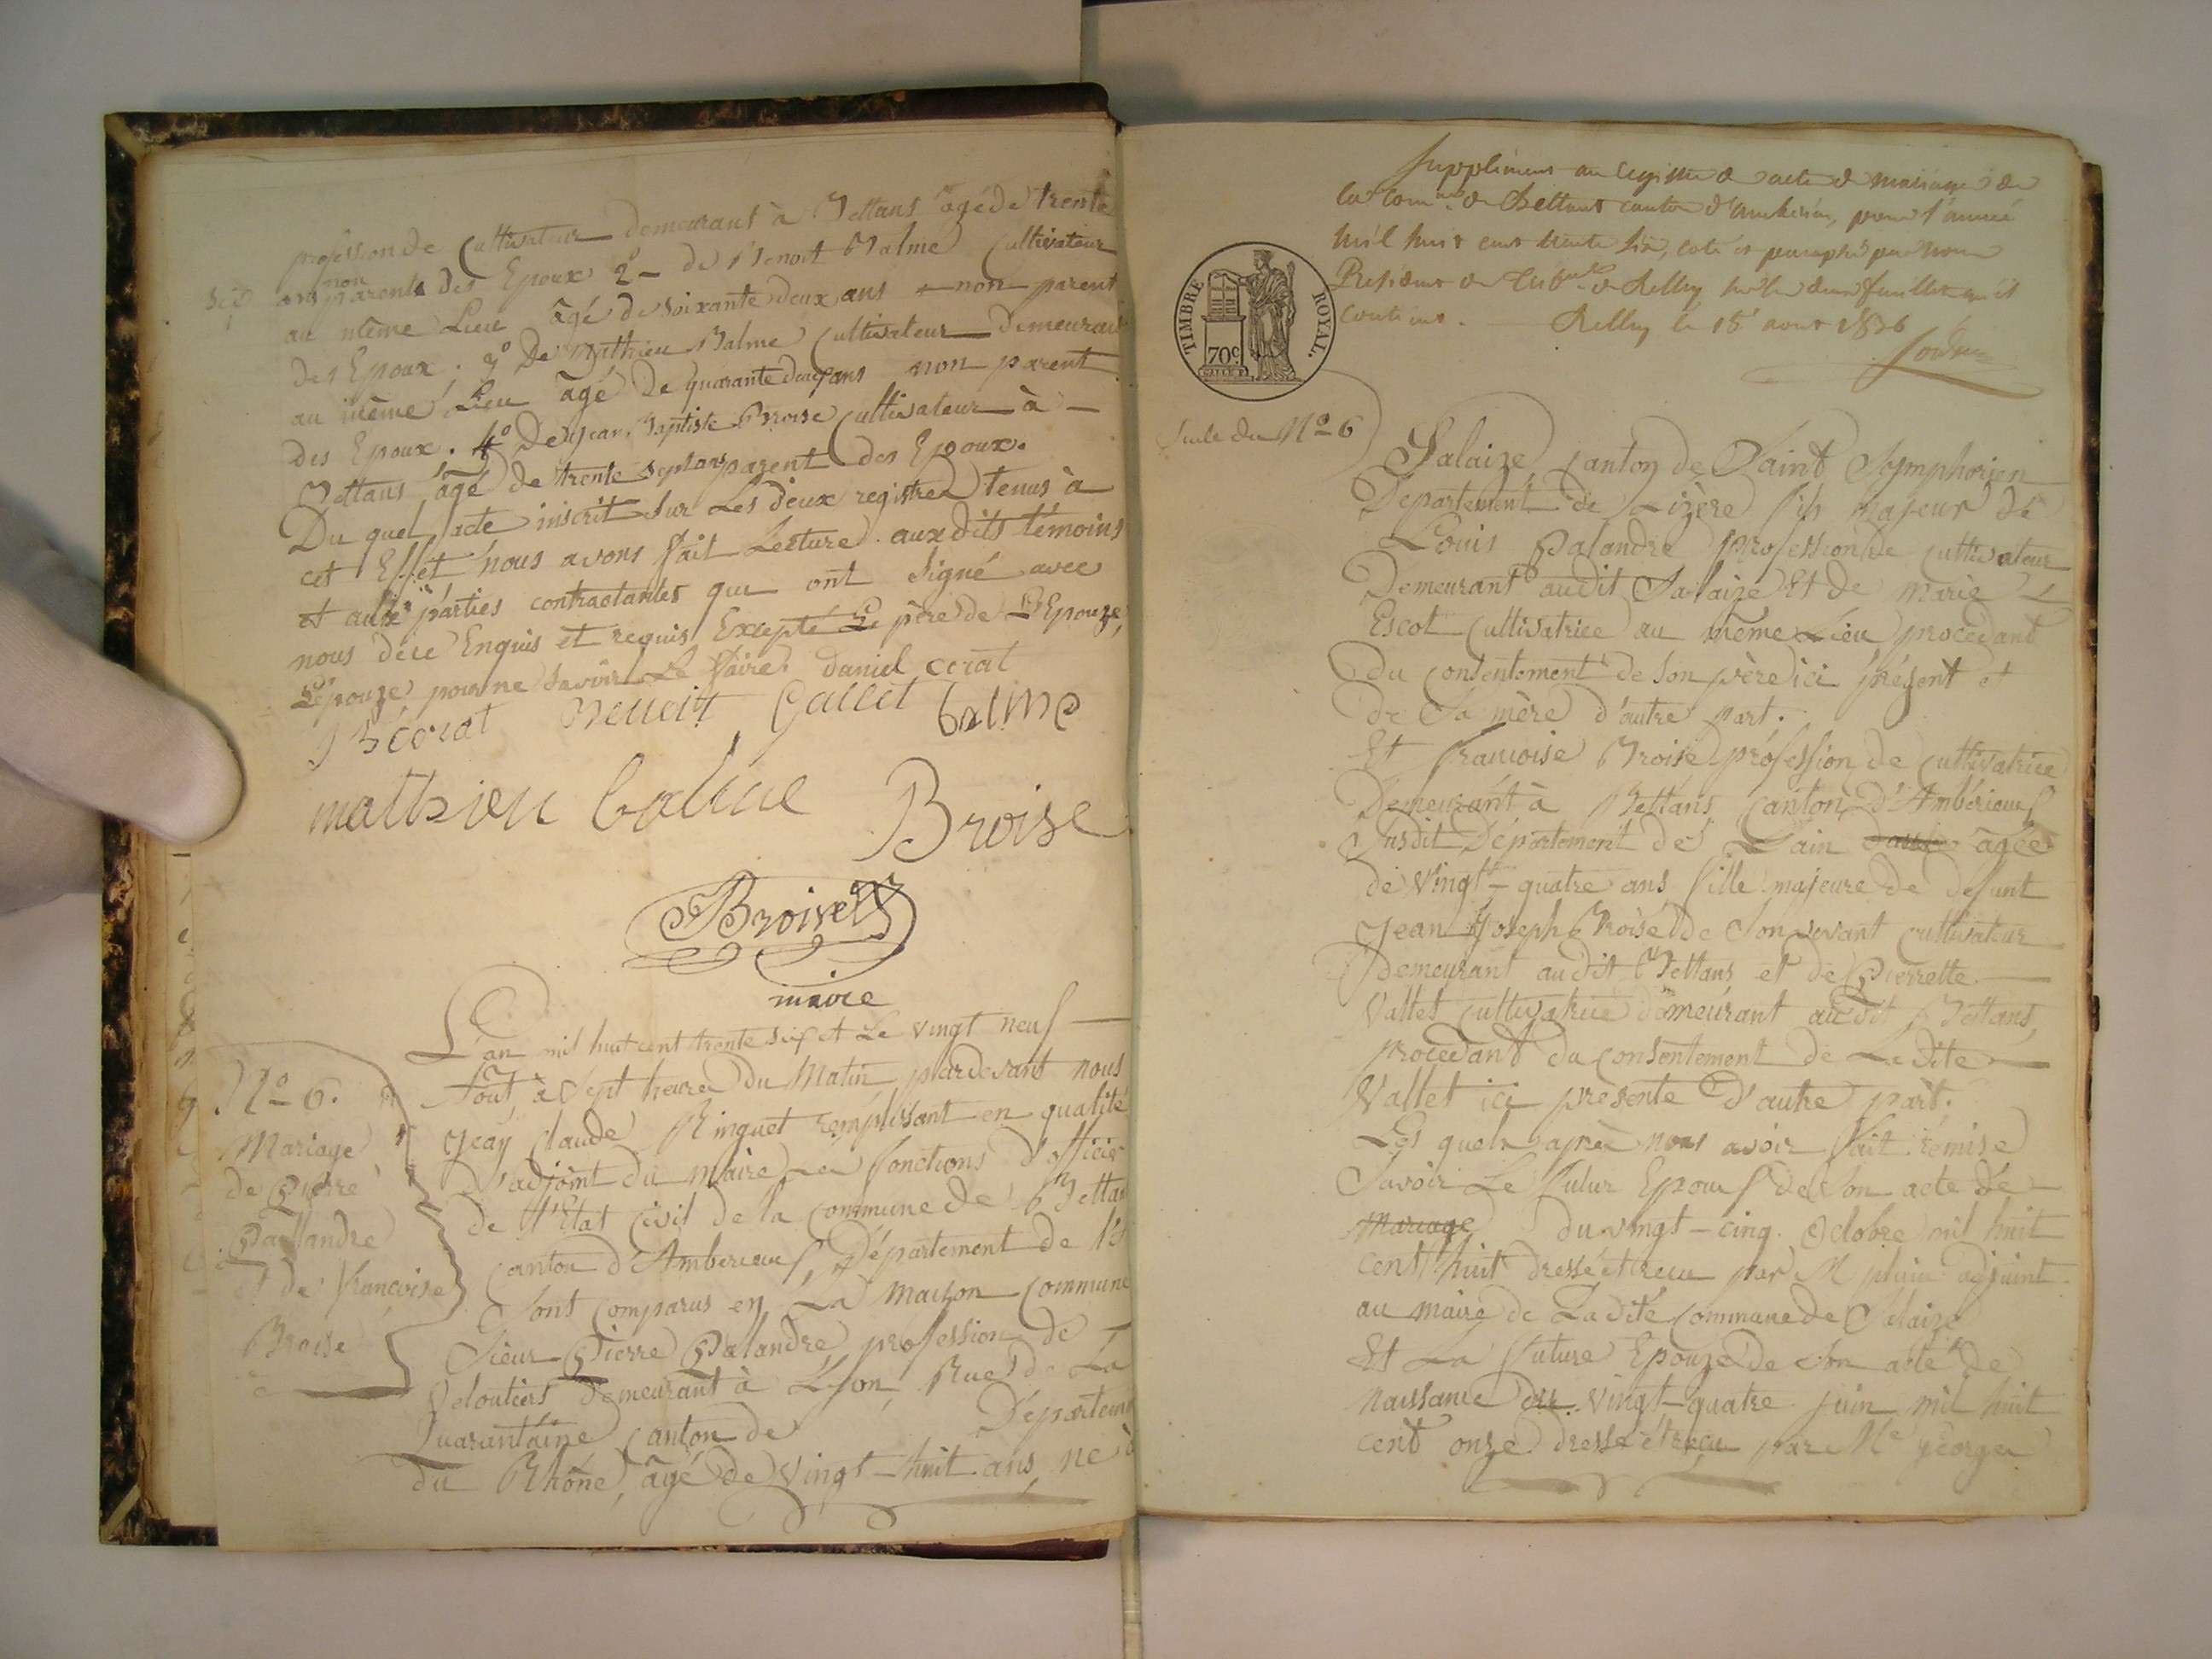 profession de Cultivateur demeurant à Bettans âgé de trente
six ans non parents des Epoux 2º de Benoit Balme Cultivateur
au même Lieu âgé de soixante deux ans non parent
des Epoux. 3º De Mathieu Balme Cultivateur Demeurant
au même Lieu âgé de quarante deux ans non parent
des Epoux. 4º De Jean Baptiste Broise Cultivateur à
Bettans âgé de trente sept ans parent des Epoux.
Du quel acte inscrit sur Les deux registres tenus à
cet Effet nous avons fait Lecture aux dits témoins
et aux parties contractantes qui ont signé avec
nous de ce Enquis et requis Excepté Le père de L'Epouze,
L'épouze, pour ne savoir Le faire. Daniel cerat
Benoit Gallet balme
mathieu balme Broise
Broise
maire
Nº 6.
Mariage
de Pierre
Pallandre
et de françoise
Broise
L'an mil huit cent trente six et Le vingt neuf
Aout à Sept heures Du Matin pardevant nous
Jean Claude Ringuet remplissant en qualité
D'adjoint du Maire Les fonctions D'officier
de l'Etat Civil de la Commune de Bettan
Canton d'Amberieux, Département de l'
Sont Comparus en La Maison Commune
Sieur Pierre Palandre profession de
Veloutiers demeurant à Lyon, Rue de La
Quarantaine Canton de Départem
du Rhône, âgé de vingt-huit ans, né à
Supplément au registre de acte de mariage de
la Comne de Bettans canton d'ambérieu, pour l'année
mil huit cent trente six, coté et paraphé par nous
Président du Tribal de Belley sur les deux feuillets qu'il
contient. Belley le 18 aout 1836
TIMBRE ROYAL.
70c
Suite du Nº 6
Salaize Canton de Saint Symphorien
Département de Lizère fils majeur de
Louis Palandre profession de Cultivateur
Demeurant audit Salaize Et de Marie
Escot Cultivatrice au même Lieu procédant
Du Consentement de son père ici présent et
de Sa mère d'autre part.
Et françoise Broise profession de Cultivatrice
Demeurant à Bettans Canton D'Ambérieux
Susdit Département de Lain âgée
de Vingt-quatre ans fille majeure de defunt
Jean Joseph Broise de Son vivant Cultivateur
Demeurant audit Bettans et de Pierrette
Vallet Cultivatrice demeurant audit Bettans,
procédant du Consentement de La dite
Vallet ici présente D'autre part.
Les quels après nous avoir fait remise
Savoir Le futur Epoux de Son acte de
Mariage du vingt-cinq Octobre mil huit
cent huit dressé et recu par M pluin adjoint
au maire de La dite Commune de Salaize
Et La future Epouze de Son acte de
Naissance du Vingt-quatre juin mil huit
cent onze dressé et reçu par Mr georges